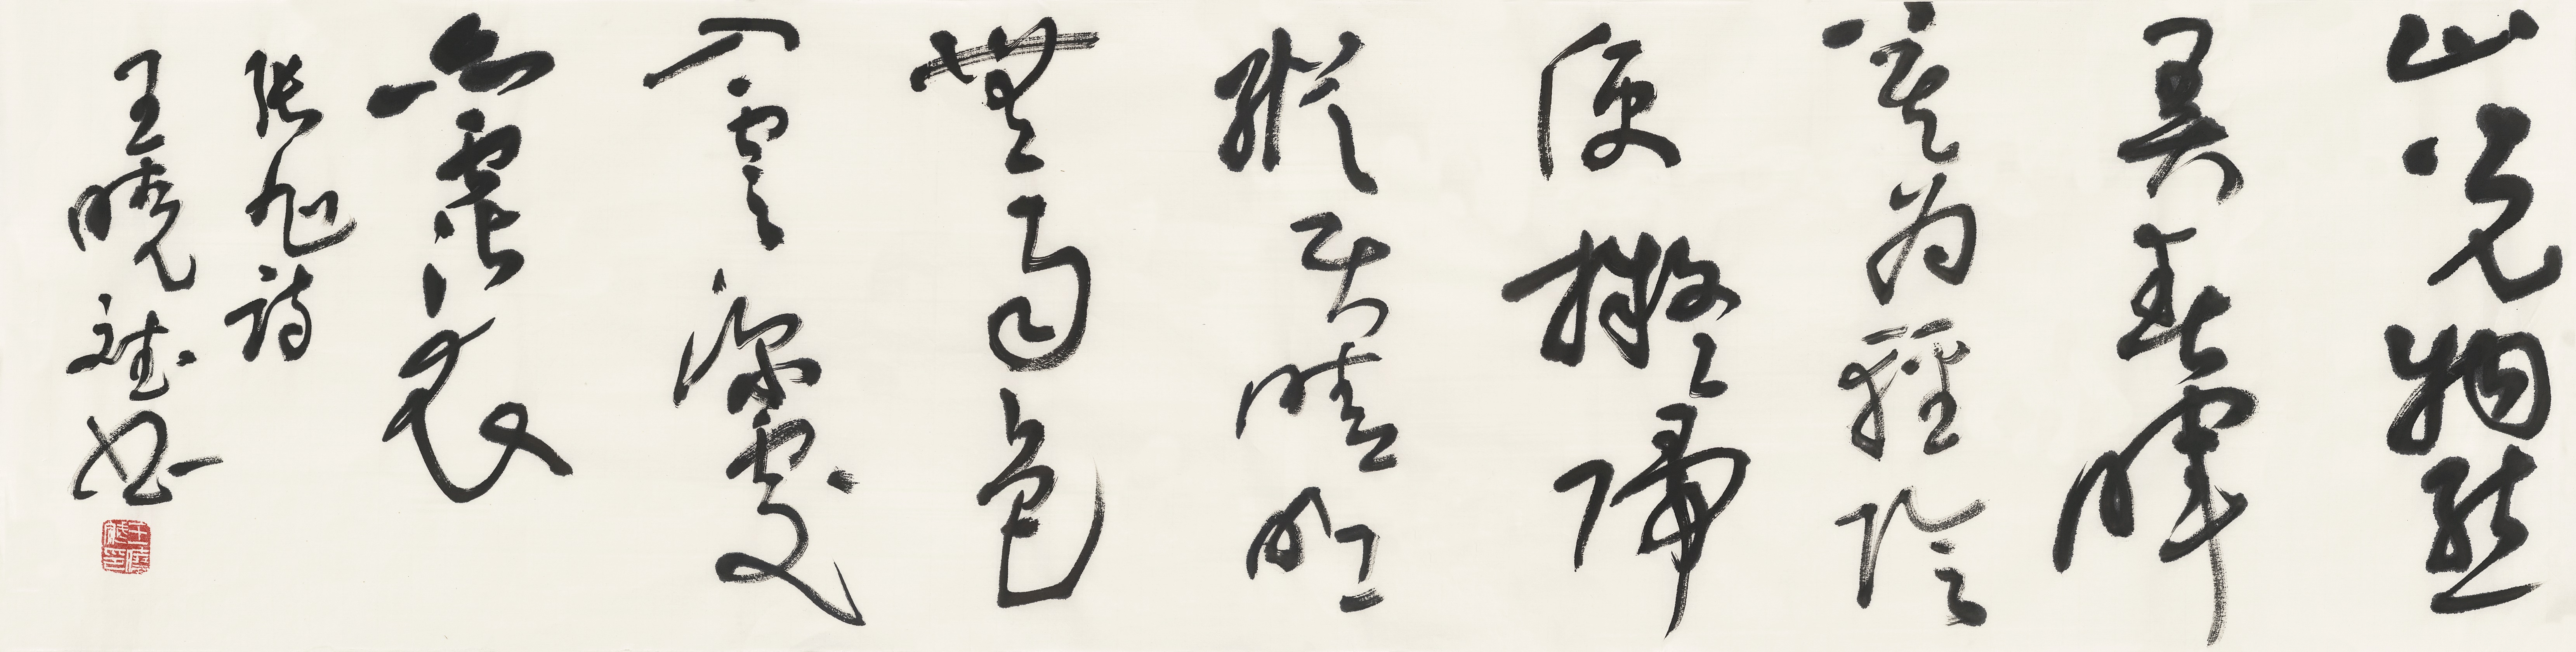 山光物態
弄春暉
莫為輕陰
便擬歸
縱使晴明
無雨色
入雲深處
亦霑衣
張旭詩
王曉斌書
王曉斌印